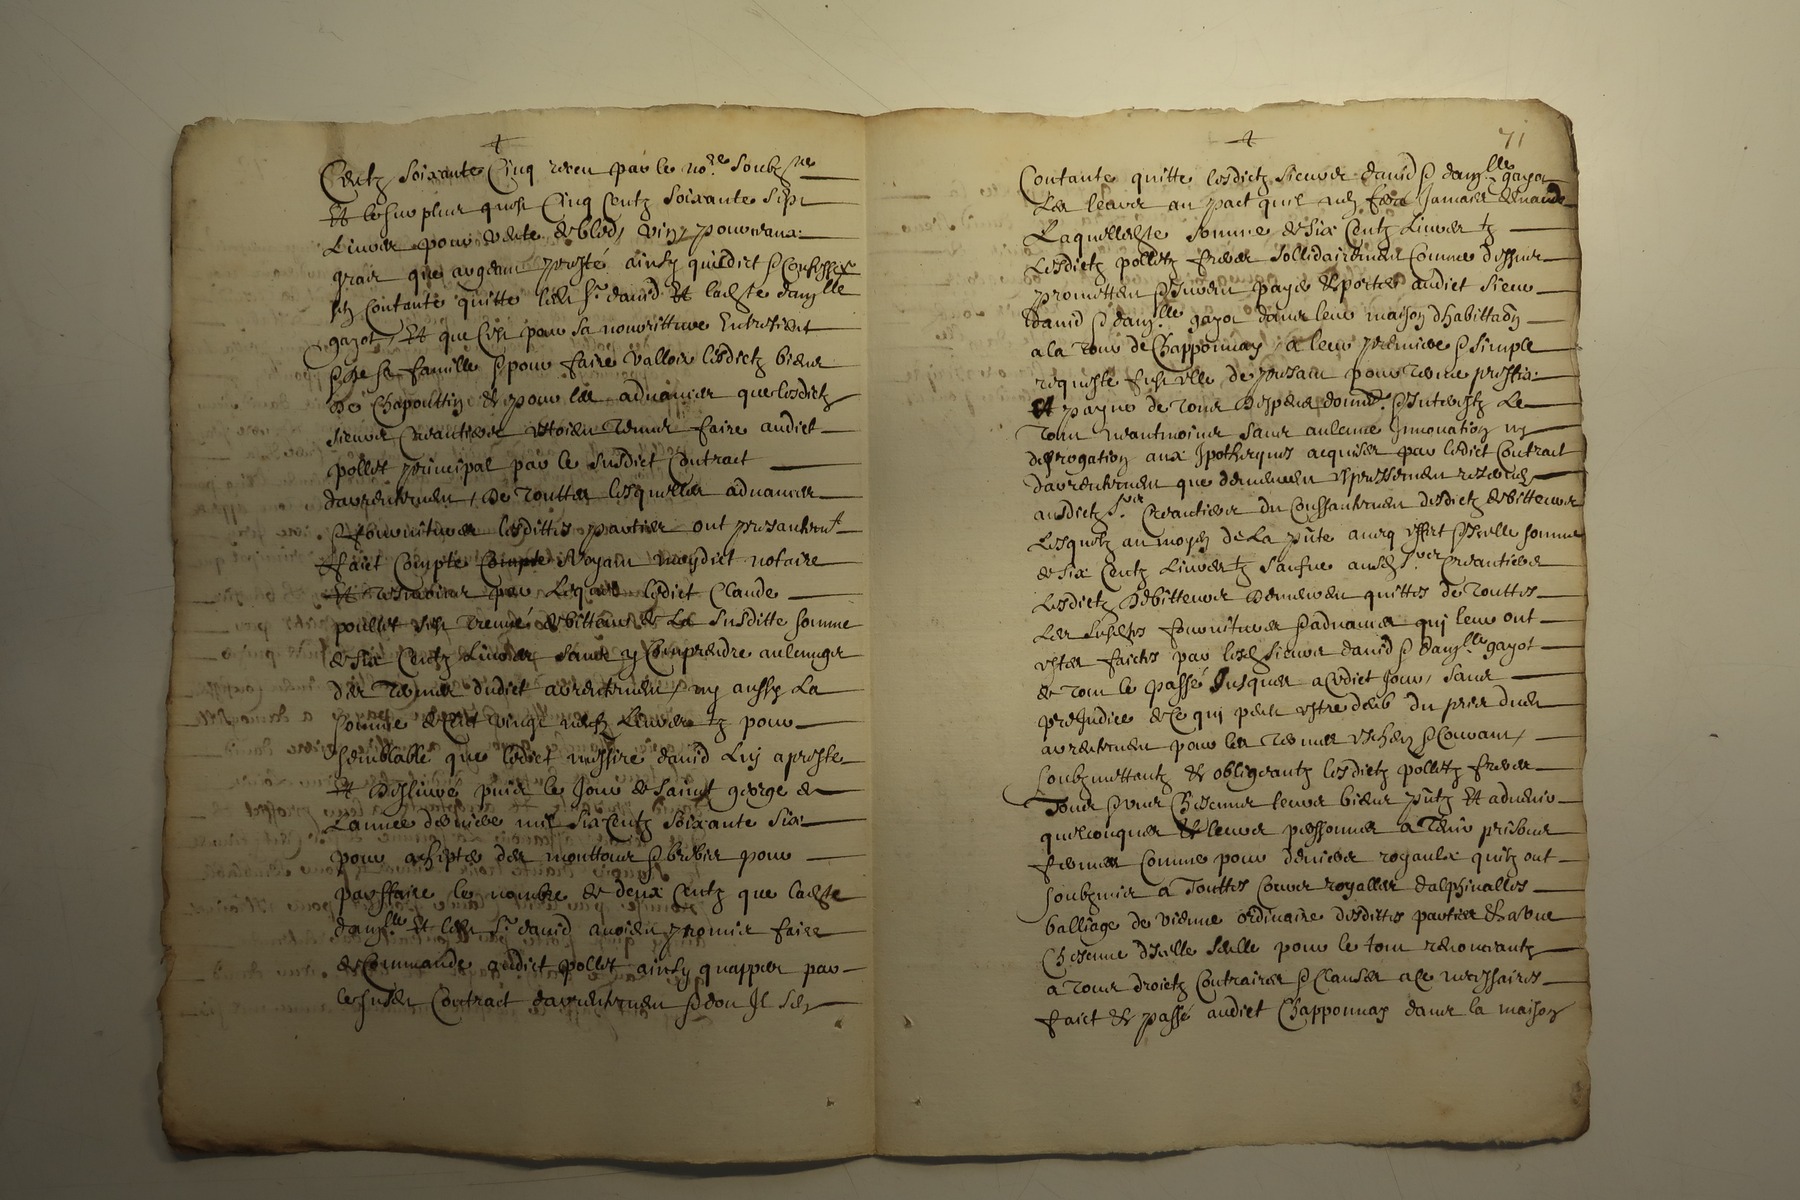 +
Centz soixante Cinq receu par le no.re soubz.ne
Et le surplus quest Cinq Centz soixante sept
Livres pour vente de bled, vin, pourceaux
grais que argeant presté ainsy quil dict & Confesse
sen Contante quitte led. Sr. david Et ladite dam.lle
gayot, Et que Cest pour sa nourritture Entretient
& de sa famille & pour faire valloir lesdictz biens
De Chapouttin & pour les advances que lesdictz
sieurs Creantiers estoient tenus faire audict
pollet principal par le susdict Contract
darrentement, De touttes lesquelles advances
& fournitures lesdittes parties ont presantem.t
faict Compte Compte moydict notaire
Et par Lequel ledict Claude
poullet sest treuvé debitteur de La susditte somme
de six Centz Livres sans y Comprendre aulcung
des termes dudict arrentement, ny aussy La
somme de Cent vingt Livres tz pour
semblable que ledict messire david Luy a preste
Et deslivré puis le Jour de saint george de
Lannee derniere mil six Centz soixante six
pour achepter des mouttons & brebis pour
parffaire le nombre de deux Centz que ladite
dam.lle Et led. Sr. david avoient promis faire
de Commande audict pollet ainsy quappert par
le susd. Contract darrentement & dont Il sen
+
71
Contante quitte lesdictz sieurs david & dam.lle gayot
Les leurs au pact quil nen fera Jamais demande
Laquelledite somme de six Centz Livres tz
Lesdictz polletz freres sollidairement Comme dessus
promettent & Jurent payer & porter audict sieur
david & dam.lle gayot dans leur maison dhabittaon
a la Tour de Chapponnay, a leur premiere & simple
requeste fust elle de presant pour terme prefix
Et payne de tous despens dom.es & Interestz Le
tout neantmoins sans aulcune Innovation ny
desrogation aux Ipotheques acquises par ledict Contract
darrentement que demeurent expressement reservées
ausdictz Srs. Creantiers du Consantement desdictz debitteurs
Lesquelz au moyen de La pnte avecq effect & Icelle somme
de six Centz Livres tz saufve ausd. Srs. Creantiers
Lesdictz Debitteurs Demeurent quittes de touttes
Les susdites fournitures & advances qui leur ont
estes faictes par lesd. sieurs david & dam.lle gayot
de tout le passé Jusques a Cedict Jour, sans
preJudice de Ce qui peut estre deub du prix dud.
arrentement pour les termes escheus & Courant,
soubzmettantz & obligeantz lesdictz polletz freres
Tous & uns Chescuns leurs biens pntz Et advenir
quelconques Et leurs personnes a Tenir prisons
fermes Comme pour deniers royaulx quilz ont
soubzmis a Touttes Cours royalles dalphinalles
balliage de vienne ordinaire desdittes parties & a une
Chescune dicelle seulle pour le tout renonceantz
a tous droictz Contraires & Clauses a ce necessaires
faict & passé audict Chapponnay dans la maison